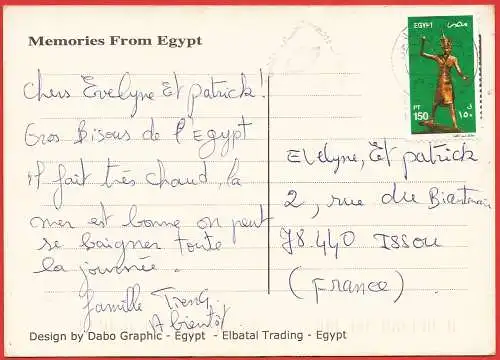 Memories From Egypt
EGYPT مصر
PT 150
١٥٠
Chers Evelyne Et Patrick!
Gros Bisous de l'Egypt
Il fait très chaud, la
mer est bonne on peut
se baigner toute
la journée.
famille
A bientôt
Evelyne, Et Patrick
2, rue du
78.440 ISSOU
(France)
Design by Dabo Graphic - Egypt - Elbatal Trading - Egypt